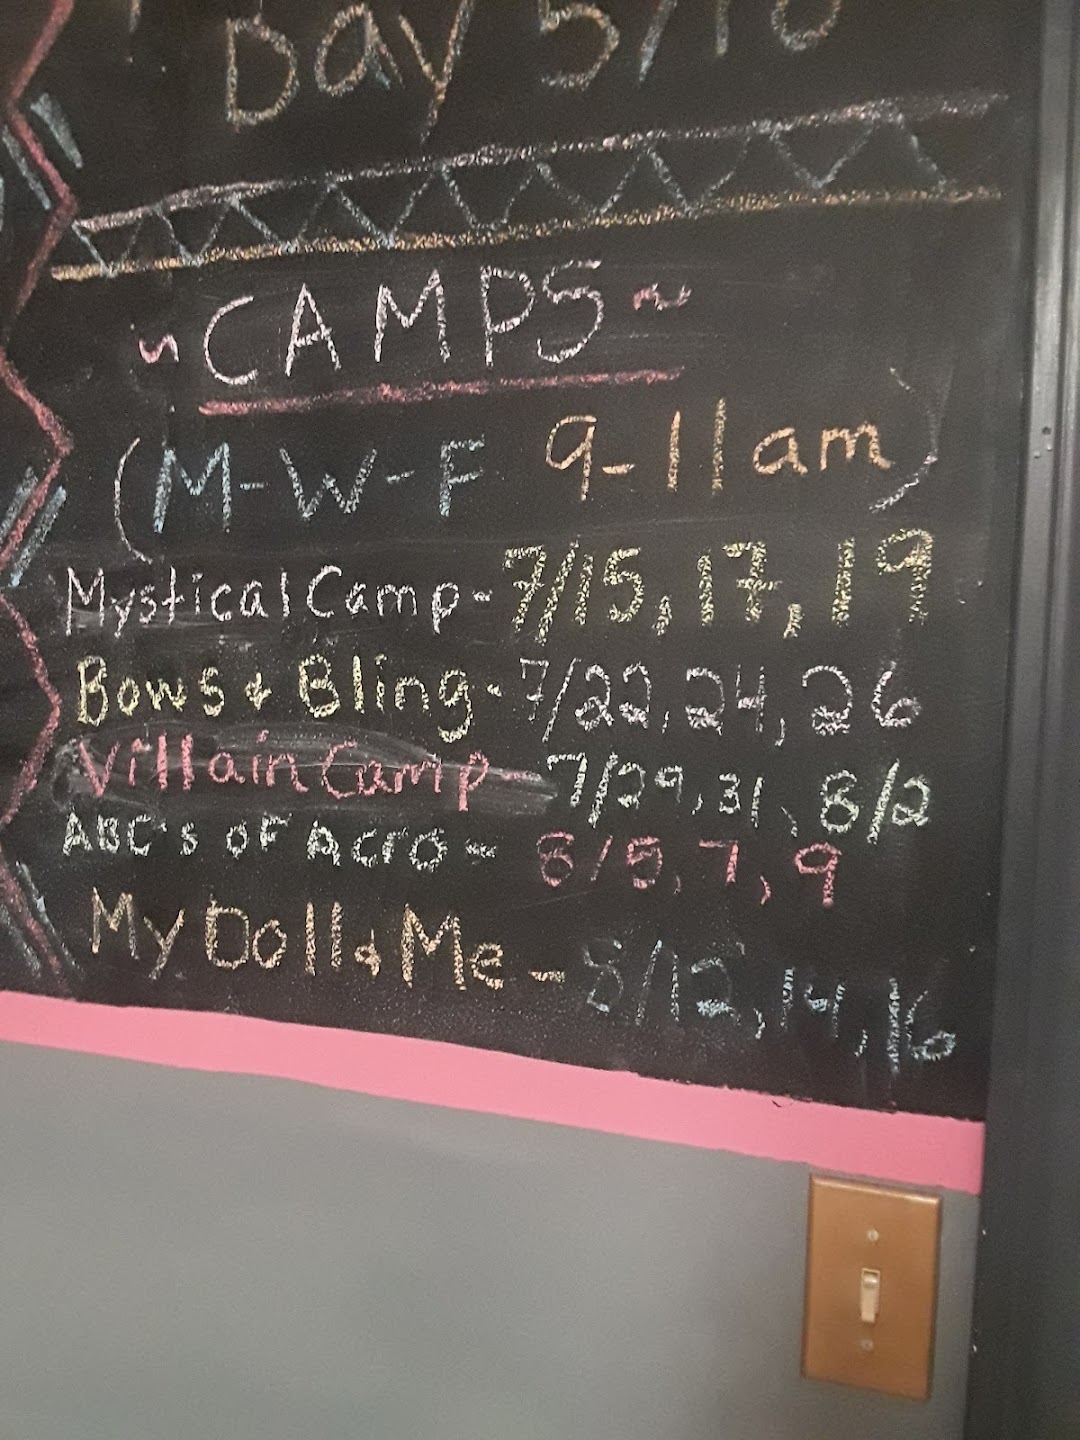 Day 5/10
~ CAMPS ~
(M-W-F 9-11am)
Mystical Camp - 7/15, 17, 19
Bows & Bling - 7/22, 24, 26
Villain Camp - 7/29, 31, 8/2
ABC's OF Acro - 8/5, 7, 9
My Doll & Me - 8/12, 14, 16